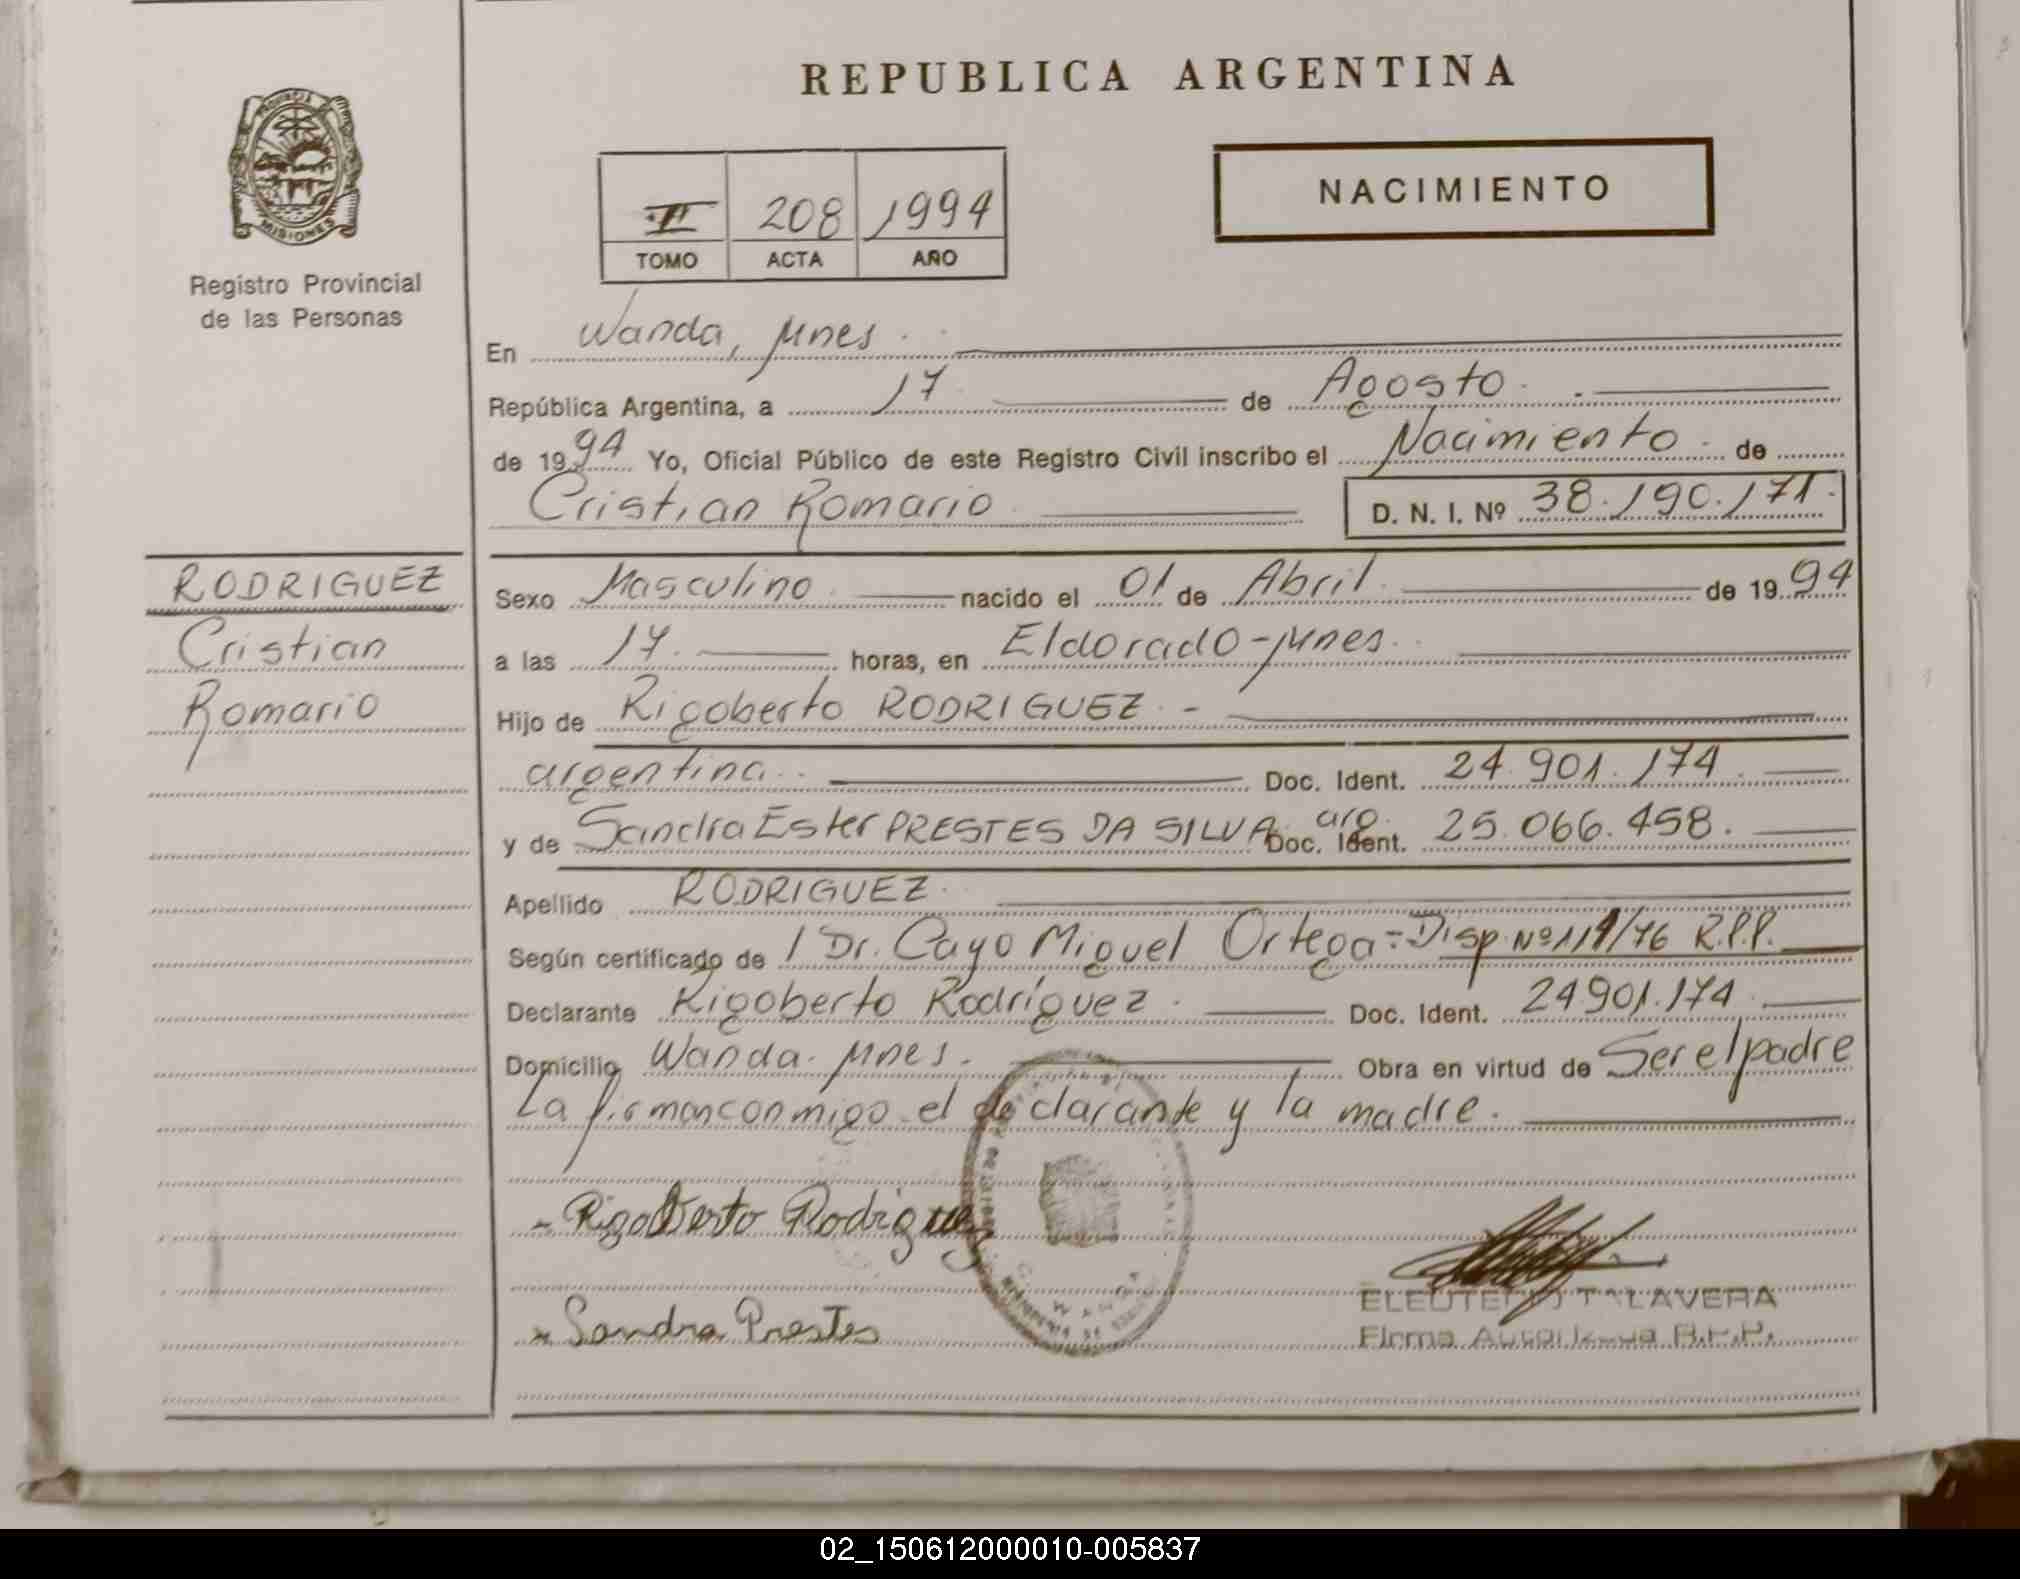 REPUBLICA ARGENTINA
PROVINCIA
MISIONES
Registro Provincial
de las Personas
II 208 1994
TOMO ACTA AÑO
NACIMIENTO
En Wanda, Mnes.
República Argentina, a 17 de Agosto
de 1994 Yo, Oficial Público de este Registro Civil inscribo el Nacimiento de
Cristian Romario D. N. I. Nº 38.190.171.
RODRIGUEZ
Cristian
Romario
Sexo Masculino nacido el 01 de Abril de 1994
a las 17. horas, en Eldorado-Mnes.
Hijo de Rigoberto RODRIGUEZ. -
argentina. Doc. Ident. 24.901.174
y de Sandra Ester PRESTES DA SILVA arg. Doc. Ident. 25.066.458.
Apellido RODRIGUEZ.
Según certificado de / Dr. Cayo Miguel Ortega = Disp. Nº 119/76 R.P.P.
Declarante Rigoberto Rodríguez. Doc. Ident. 24901.174
Domicilio Wanda. Mnes. Obra en virtud de Ser el padre
La firman conmigo el declarante y la madre.
- Rigoberto Rodriguez
- Sandra Prestes
WANDA
ELEUTERIO TALAVERA
Firma Autorizada R.P.P.
02_150612000010-005837